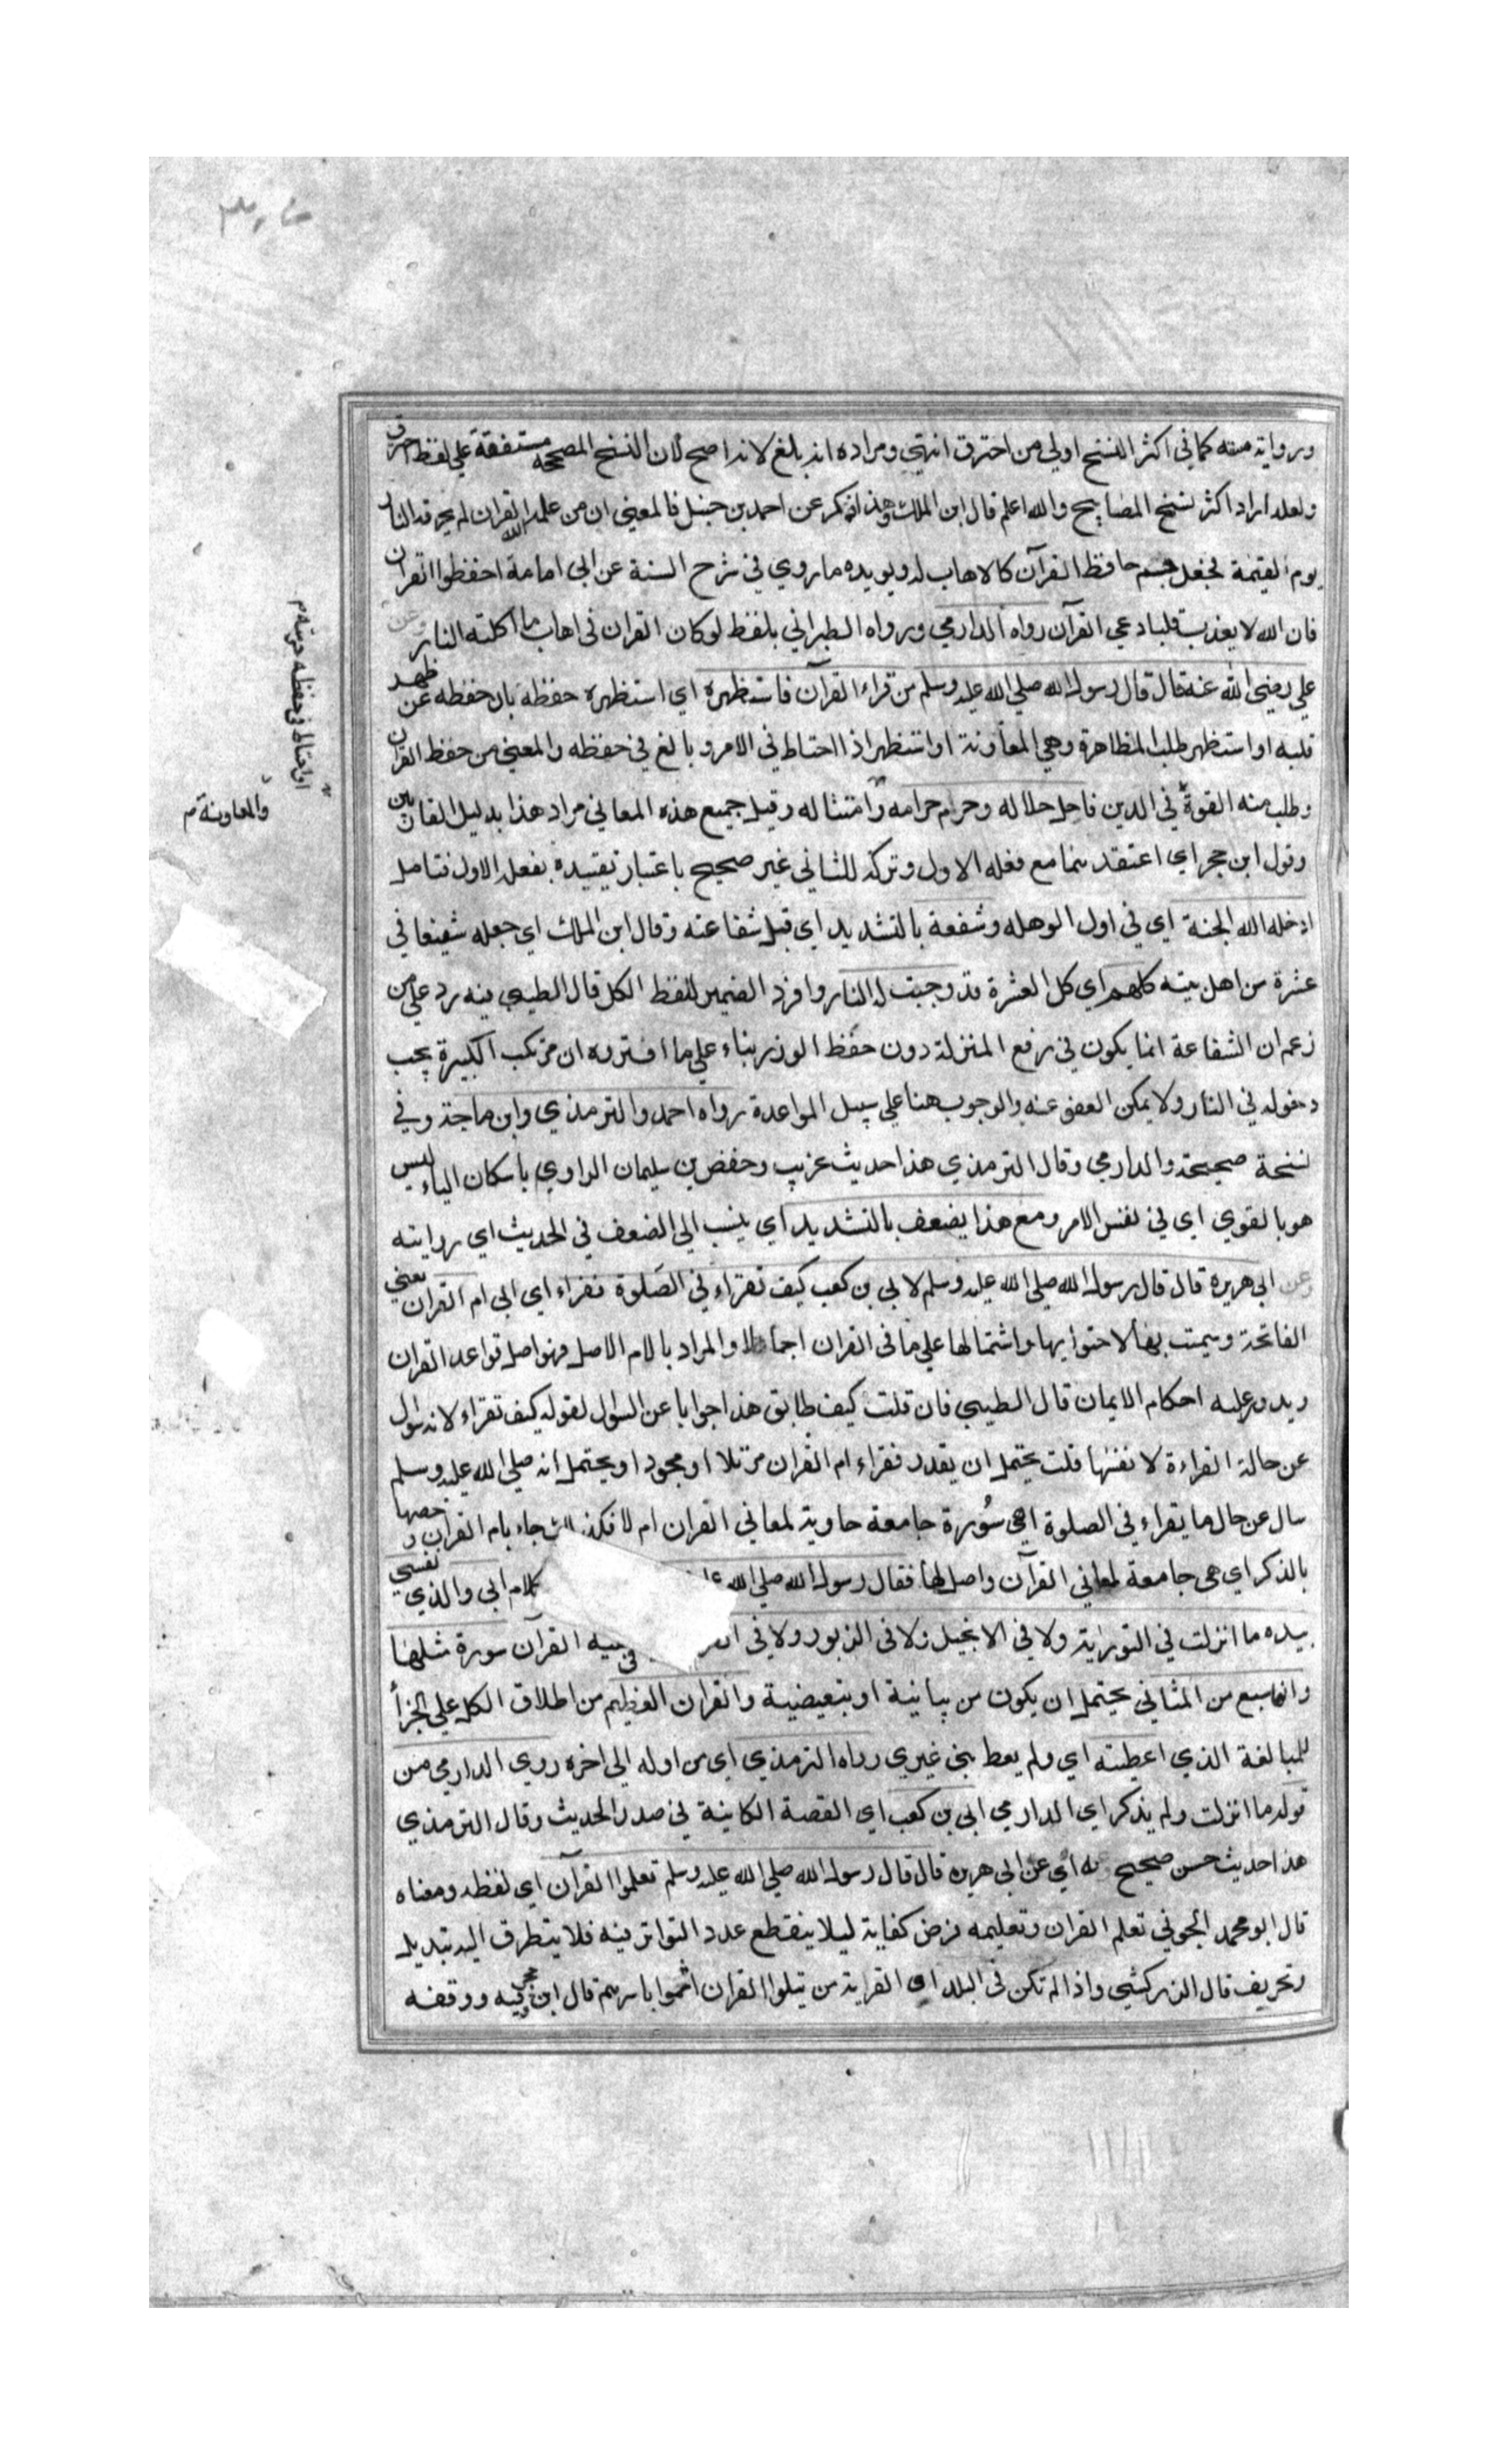 ورواية مسته كما في اكثر النسخ اولي من احترق انتهي ومراده انه بلغ لانه اصح لان النسخ المصححة متفقة علي لفظ احترق
ولعله اراد اكثر نسخ المصابيح والله اعلم قال ابن الملك وهذا ذكر عن احمد بن حنبل فالمعني ان من علمه الله القران لم يحرقه النار
يوم القيمة فجعل جسم حافظ القرآن كالاهاب له ويويده ما روي في شرح السنة عن ابي امامة احفظوا القران
فان الله لا يعذب قلبا دعي القرآن رواه الدارمي ورواه الطبراني بلفظ لو كان القران في اهاب ما اكلته النار وعن
علي رضي الله عنه قال قال رسول الله صلي الله عليه وسلم من قراء القرآن فاستظهره اي استظهره حفظه بان حفظه عن ظهر
قلبه او استظهر طلب المظاهرة وهي المعاونة او استظهر اذا احتاط في الامر وبالغ في حفظه والمعني من حفظ القران
وطلب منه القوة في الدين فاحل حلاله وحرم حرامه وامتثاله وقيل جميع هذه المعاني مراد هذا بدليل الفائين
وقول ابن حجر اي اعتقد بنما مع فعله الاول وتركه للثاني غير صحيح باعتبار تقييده بفعل الاول فتامل
ادخله الله الجنة اي في اول الوهله وشفعة بالتشديد اي قبل شفاعته وقال ابن الملك اي جعله شفيعا في
عشرة من اهل بيته كلهم اي كل العشرة قد وجبت له النار وافرد الضمير للفظ الكل قال الطيبي فيه رد علي من
زعم ان الشفاعة انما يكون في رفع المنزلة دون حفظ الوزر بناء علي ما افتروه ان مرتكب الكبيرة يجب
دخوله في النار ولا يمكن العفو عنه والوجوب هنا علي سبيل المواعدة رواه احمد والترمذي وابن ماجة وفي
نسخة صحيحة والدارمي وقال الترمذي هذا حديث غريب وحفص بن سليمان الراوي باسكان الياء ليس
هو بالقوي اي في نفس الامر ومع هذا يضعف بالتشديد اي ينسب الي الضعف في الحديث اي روايته
وعن ابي هريره قال قال رسول الله صلي الله عليه وسلم لابي بن كعب كيف تقراء في الصلوة فقراء اي ابي ام القران يعني
الفاتحة وسميت بها لاحتوايها واشتمالها علي ما في القران اجمالا والمراد بالام الاصل فهو اصل قواعد القران
ويدور عليه احكام الايمان قال الطيبي فان قلت كيف طابق هذا جوابا عن السوال لقوله كيف تقراء لانه سوال
عن حالة القراءة لا نفسها قلت يحتمل ان يقدر فقراء ام القران مرتلا او مجودا ويحتمل انه صلي الله عليه وسلم
سال عن حال ما يقراء في الصلوة اهي سورة جامعة حاوية لمعاني القران ام لا فلذلك جاء بام القران وخصها
بالذكر اي هي جامعة لمعاني القرآن واصل لها فقال رسول الله صلي الله كلام ابي والذي نفسي
بيده ما انزلت في التورية ولا في الانجيل ولا في الزبور ولا في القرآن سورة مثلها
وانها سبع من المثاني يحتمل ان يكون من بيانية او تبعيضية والقران العظيم من اطلاق الكل علي الجزأ
للمبالغة الذي اعطيته اي ولم يعط نبي غيري رواه الترمذي اي من اوله الي اخره روي الدارمي من
قوله ما انزلت ولم يذكر اي الدارمي ابي بن كعب اي القصة الكاينة في صدر الحديث وقال الترمذي
هذا حديث حسن صحيح وعنه اي عن ابي هريره قال قال رسول الله صلي الله عليه وسلم تعلموا القرآن اي لفظه ومعناه
قال ابو محمد الجويني تعلم القران وتعليمه فرض كفاية ليلا ينقطع عدد التواتر فيه فلا يتطرق اليه تبديل
وتحريف قال الزركشي واذا لم تكن في البلد او القرية من يتلوا القران اثموا باسرهم قال ابن حجر وفيه ووقفه
او احتاط في حفظه حرمته م
والمعاونة م